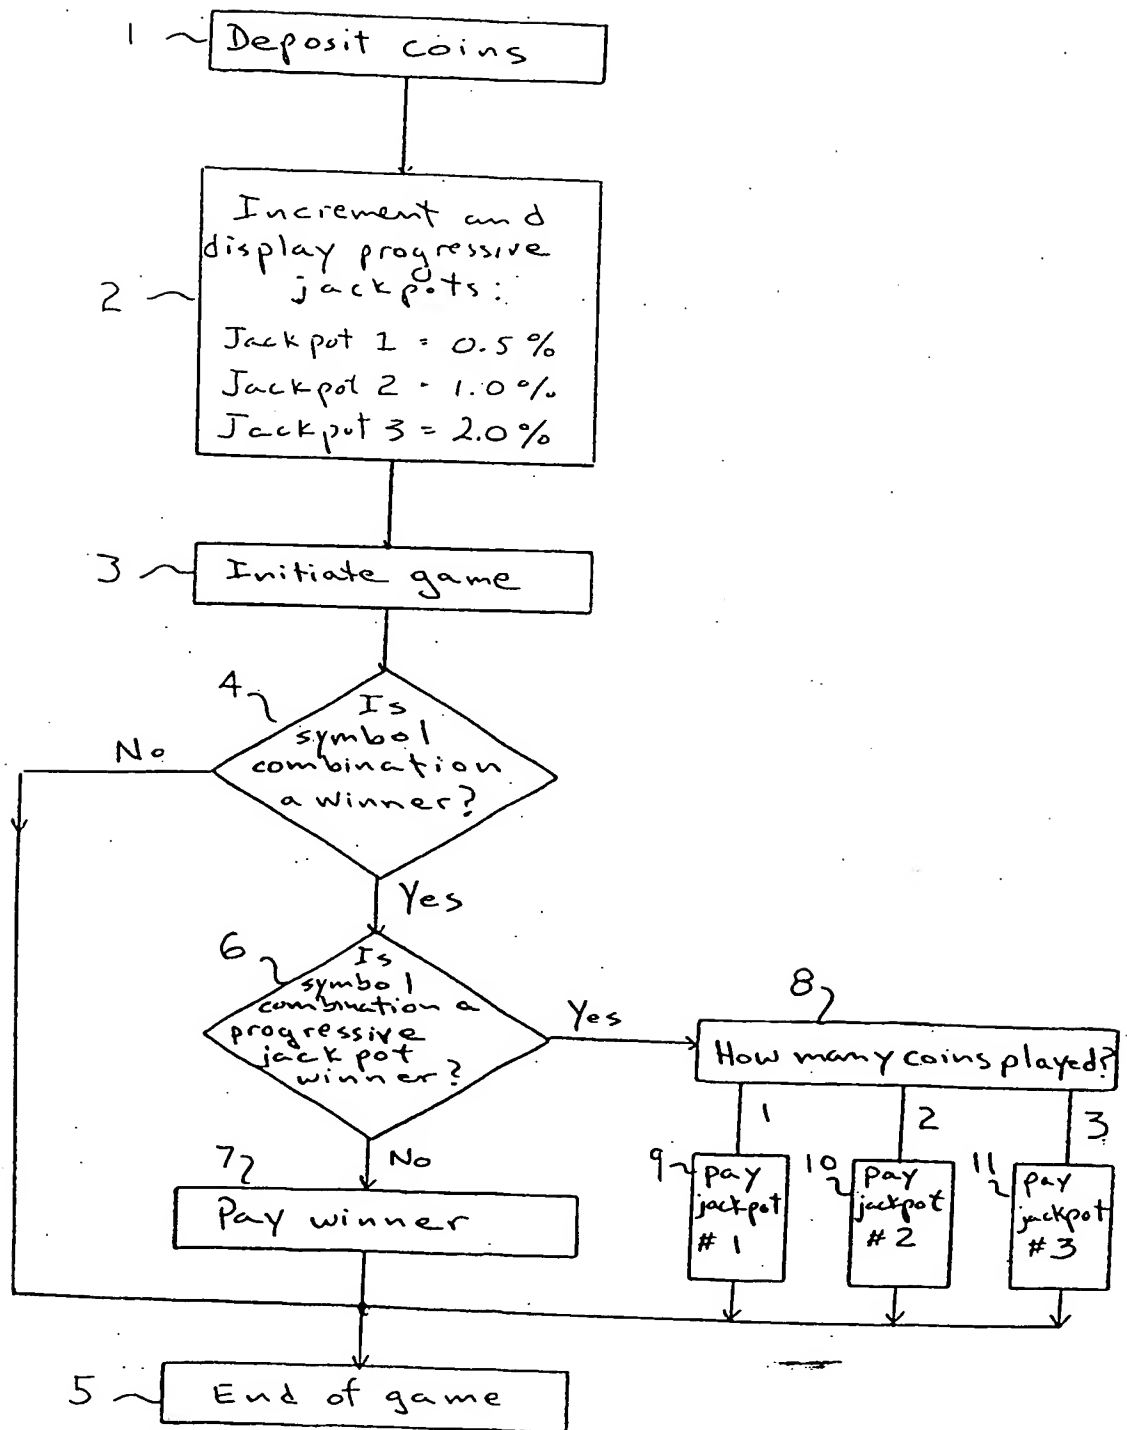 1
Deposit coins
2
Increment and
display progressive
jackpots:
Jackpot 1 = 0.5%
Jackpot 2 - 1.0%
Jackpot 3 = 2.0%
3
Initiate game
4
Is
symbol
combination
a winner?
No
Yes
6
Is
symbol
combination a
progressive
jackpot
winner?
Yes
8
How many coins played?
1
2
3
9
pay
jackpot
# 1
10
pay
jackpot
# 2
11
pay
jackpot
# 3
No
7
Pay winner
5
End of game